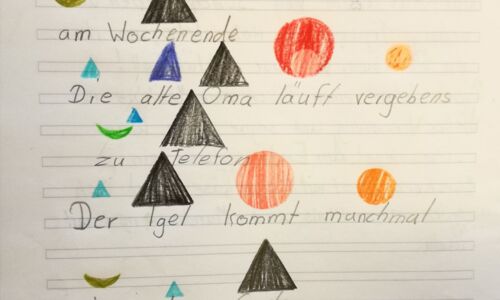 am Wochenende
Die alte Oma läuft vergebens
zu Telefon
Der Igel kommt manchmal